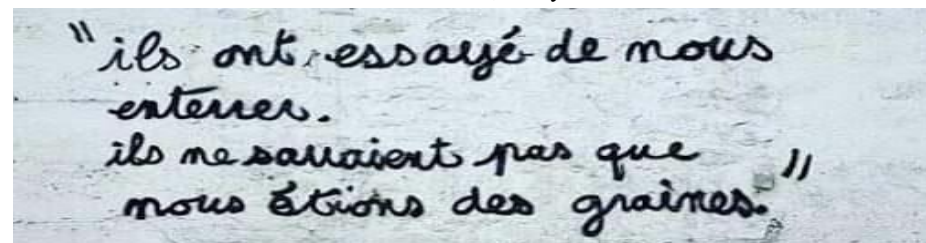 "ils ont essayé de nous
enterrer.
ils ne savaient pas que
nous étions des graines."